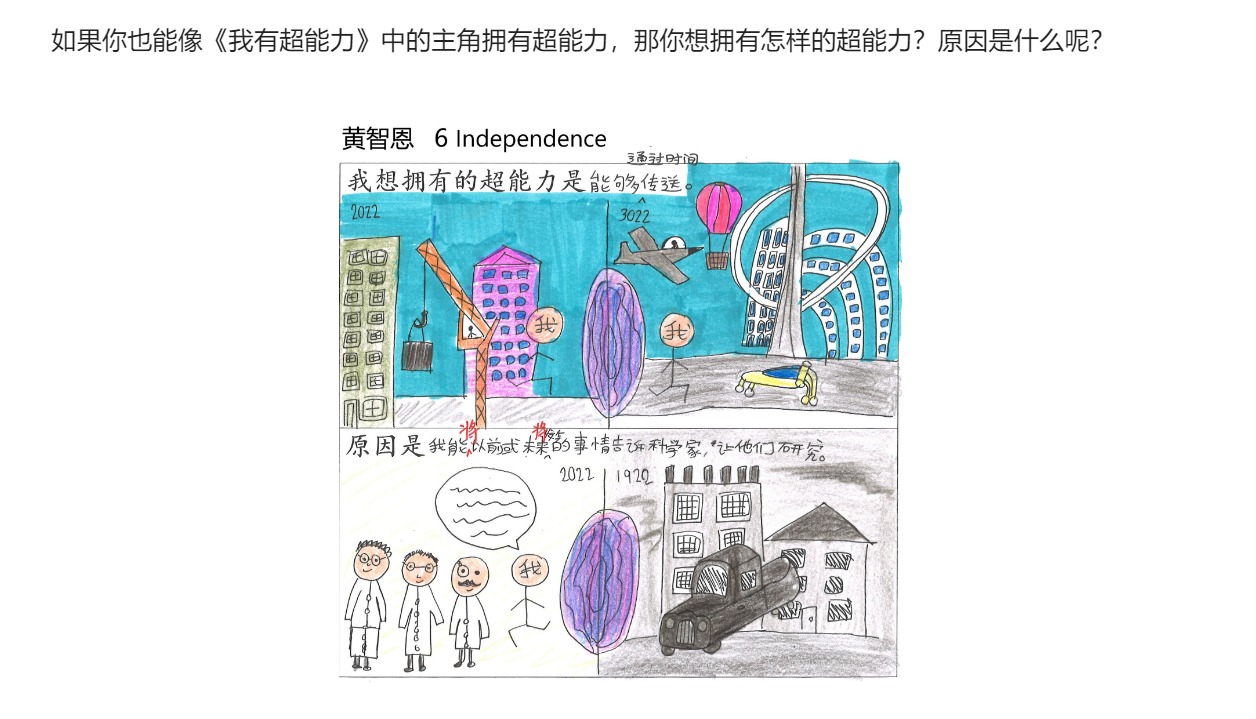 如果你也能像《我有超能力》中的主角拥有超能力，那你想拥有怎样的超能力？原因是什么呢？
黄智恩 6 Independence
通过时间
我想拥有的超能力是能够传送。
2022
3022
我
我
将 将
原因是我能以前或未来的事情告诉科学家，让他们研究。
2022
1922
我